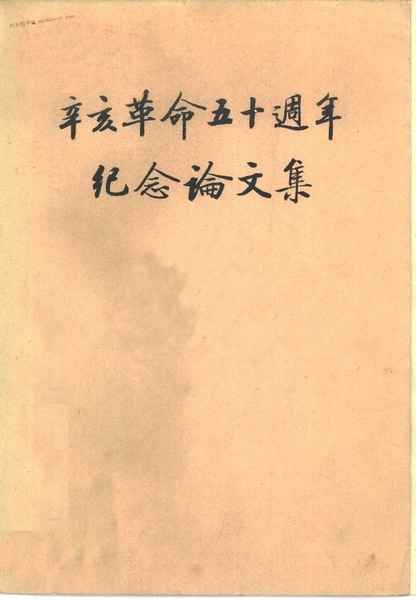 辛亥革命五十週年
纪念論文集